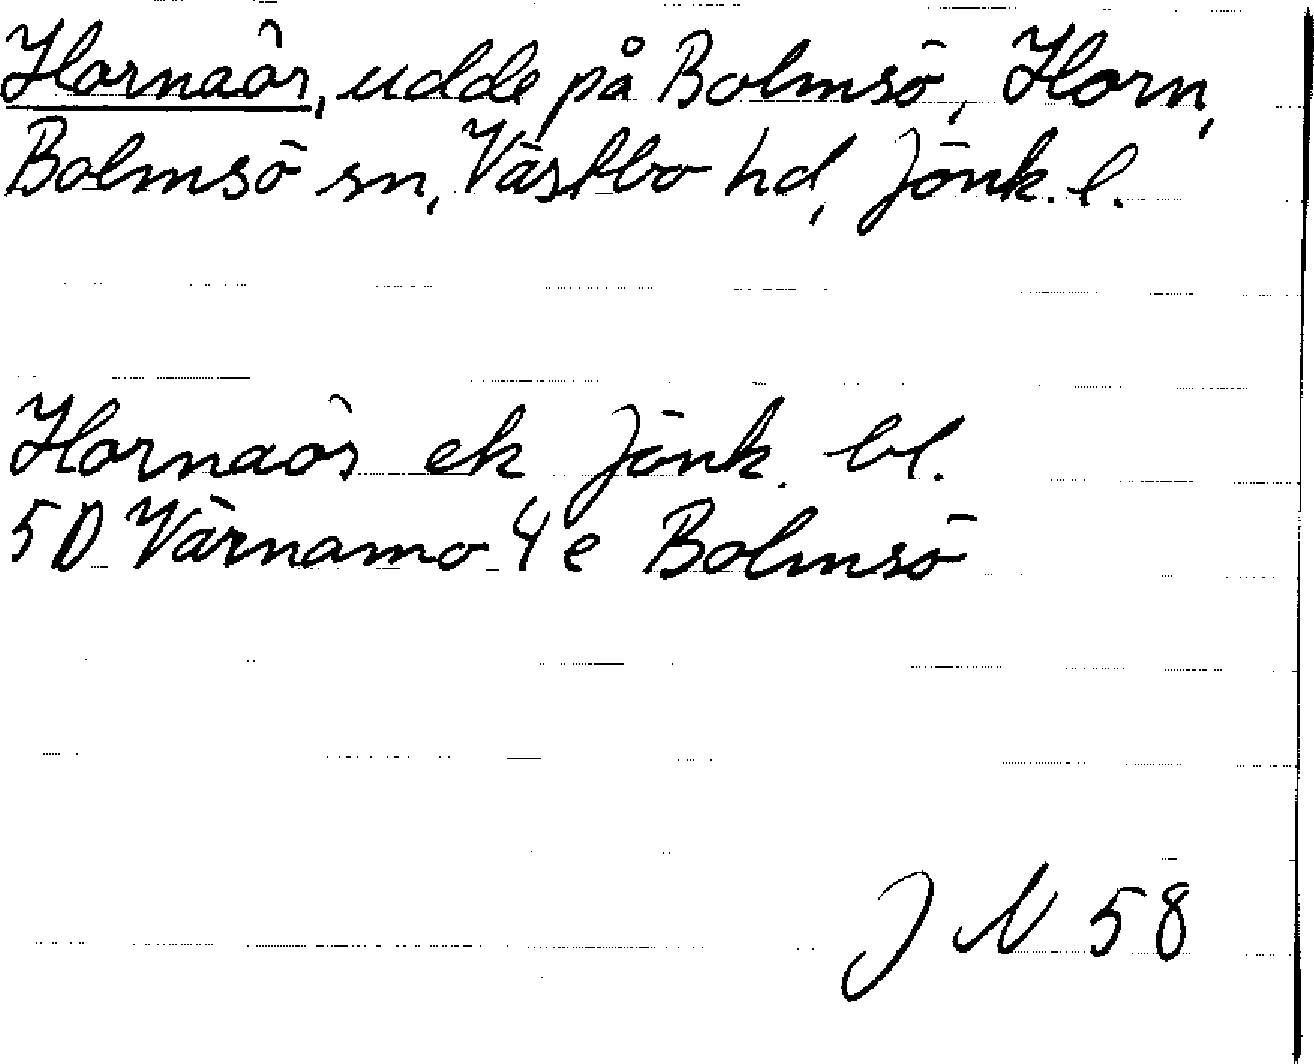 Hornaör, udde på Bolmsö, Horn,
Bolmsö sn, Västbo hd, Jönk. l.
Hornaör ek Jönk. bl.
5D Värnamo 4e Bolmsö
J N 58